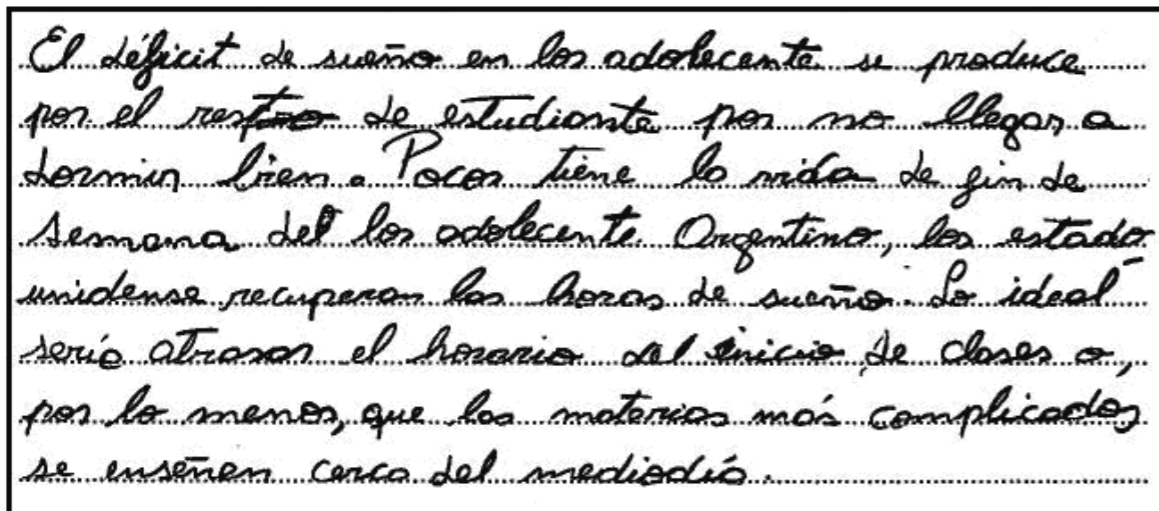 El déficit de sueño en los adolecente se produce
por el de estudiante por no llegar a
dormir bien. Pocos tiene la vida de fin de
semana del los adolecente Argentino, los estado
unidense recuperan las horas de sueño. Lo ideal
sería atrasar el horario del inicio de clases o,
por lo menos, que las materias más complicadas
se enseñen cerca del mediodía.